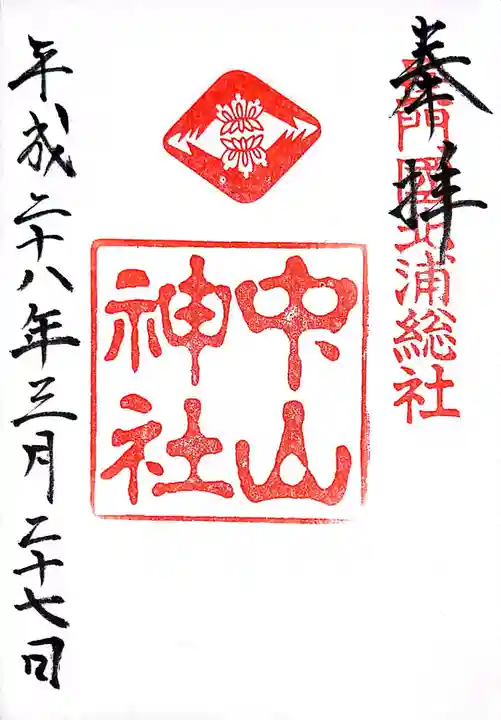 奉拝
長門國北浦総社
中山
神社
平成二十八年三月二十七日